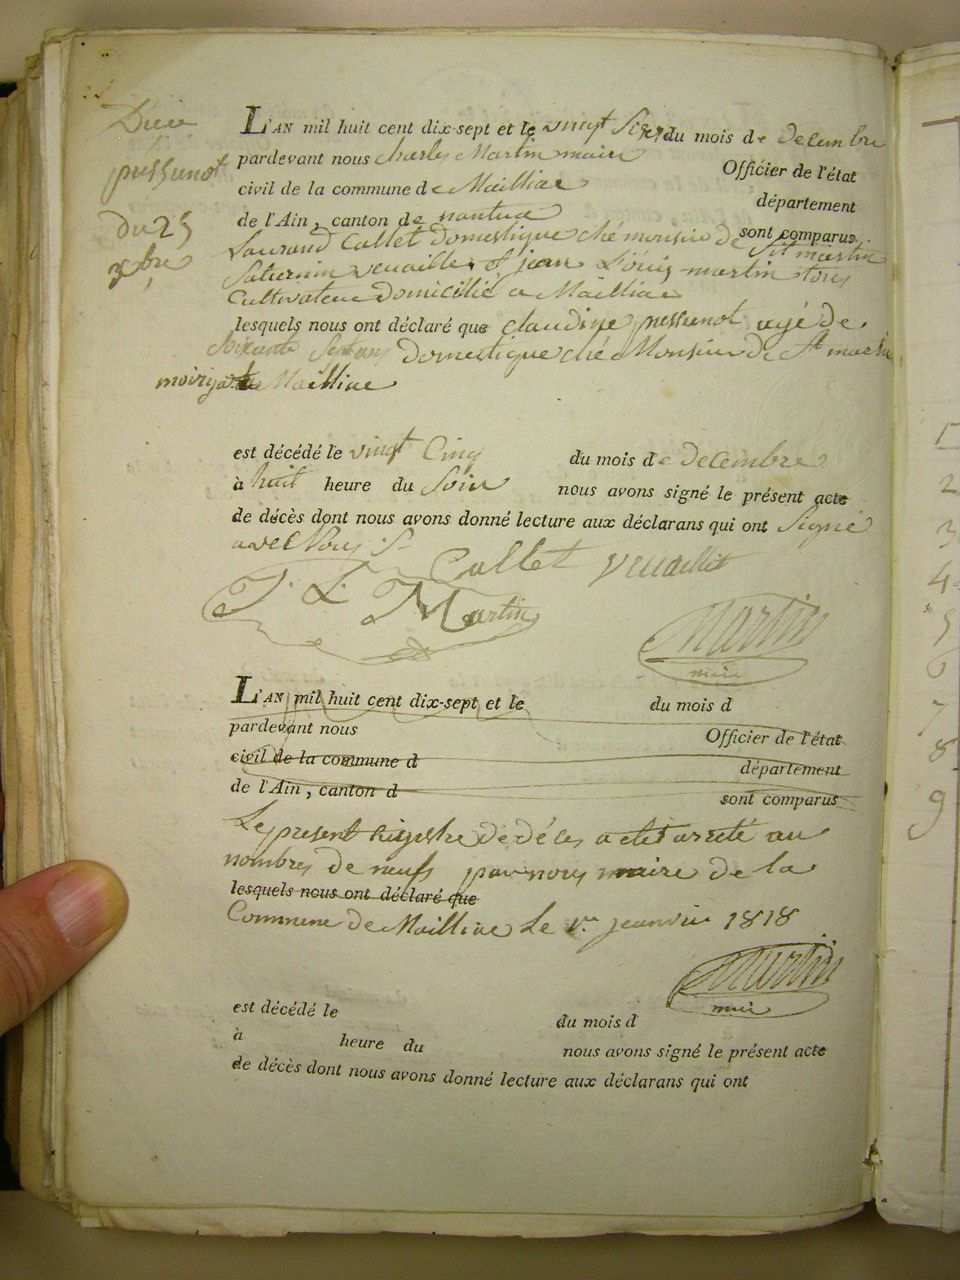 Décé
pussunot
du 25
xbre
L'AN mil huit cent dix-sept et le vingt six du mois de decembre
pardevant nous Charles Martin maire Officier de l'état
civil de la commune de Mailliac département
de l'Ain, canton de nantua sont comparus
Laurand Collet domestique ché monsieur de St martin
Saturnin veuaillet et jean Louis martin tous
Cultivateur domicilié a Mailliac
lesquels nous ont déclaré que claudine pussunot agé de
Soixante Sept ans domestique ché Monsieur de St martin
Mailliac
est décédé le vingt Cinq du mois de decembre
à huit heure du Soir nous avons signé le présent acte
de décès dont nous avons donné lecture aux déclarans qui ont Signé
avec Nous
Collet veuaillit
J. L. Martin
Martin
maire
L'AN mil huit cent dix-sept et le du mois d
pardevant nous Officier de l'état
civil de la commune d département
de l'Ain, canton d sont comparus
Le present registre dé décés a eté arreté au
nombres de neufs par nous maire de la
lesquels nous ont déclaré que
Commune de Mailliac Le 1er jeanvie 1818
Martin
maire
est décédé le du mois d
à heure du nous avons signé le présent acte
de décès dont nous avons donné lecture aux déclarans qui ont
1
2
3
4
5
6
7
8
9